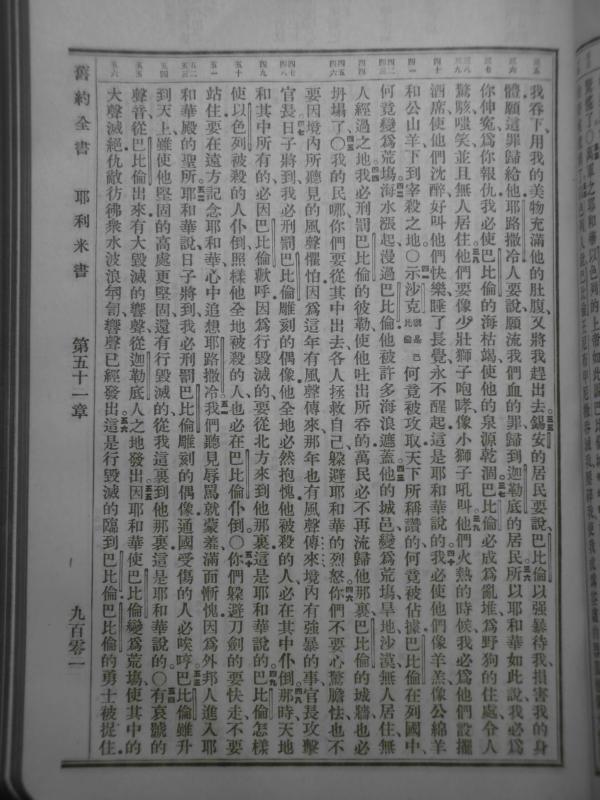 我吞下用我的美物充滿他的肚腹又將我趕出去錫安的居民要說巴比倫以強暴待我損害我的身
體願這罪歸給他耶路撒冷人要說願流我們血的罪歸到迦勒底的居民所以耶和華如此說我必為
你伸冤為你報仇我必使巴比倫的海枯竭使他的泉源乾涸巴比倫必成為亂堆為野狗的住處令人
驚駭嗤笑並且無人居住他們要像少壯獅子咆哮像小獅子吼叫他們火熱的時候我必為他們設擺
酒席使他們沈醉好叫他們快樂睡了長覺永不醒起這是耶和華說的我必使他們像羊羔像公綿羊
和公山羊下到宰殺之地〇示沙克就是巴比倫何竟被攻取天下所稱讚的何竟被佔據巴比倫在列國中
何竟變為荒塲海水漲起漫過巴比倫他被許多海浪遮蓋他的城邑變為荒塲旱地沙漠無人居住無
人經過之地我必刑罰巴比倫的彼勒使他吐出所吞的萬民必不再流歸他那裏巴比倫的城牆也必
坍塌了〇我的民哪你們要從其中出去各人拯救自己躲避耶和華的烈怒你們不要心驚膽怯也不
要因境內所聽見的風聲懼怕因為這年有風聲傳來那年也有風聲傳來境內有強暴的事官長攻擊
官長日子將到我必刑罰巴比倫雕刻的偶像他全地必然抱愧他被殺的人必在其中仆倒那時天地
和其中所有的必因巴比倫歡呼因為行毀滅的要從北方來到他那裏這是耶和華說的巴比倫怎樣
使以色列被殺的人仆倒照樣他全地被殺的人也必在巴比倫仆倒〇你們躲避刀劍的要快走不要
站住要在遠方記念耶和華心中追想耶路撒冷我們聽見辱罵就蒙羞滿面慚愧因為外邦人進入耶
和華殿的聖所耶和華說日子將到我必刑罰巴比倫雕刻的偶像通國受傷的人必唉哼巴比倫雖升
到天上雖使他堅固的高處更堅固還有行毀滅的從我這裏到他那裏這是耶和華說的〇有哀號的
聲音從巴比倫出來有大毀滅的響聲從迦勒底人之地發出因耶和華使巴比倫變為荒塲使其中的
大聲滅絕仇敵彷彿衆水波浪匉訇響聲已經發出這是行毀滅的臨到巴比倫巴比倫的勇士被捉住
舊約全書 耶利米書 第五十一章 九百零一